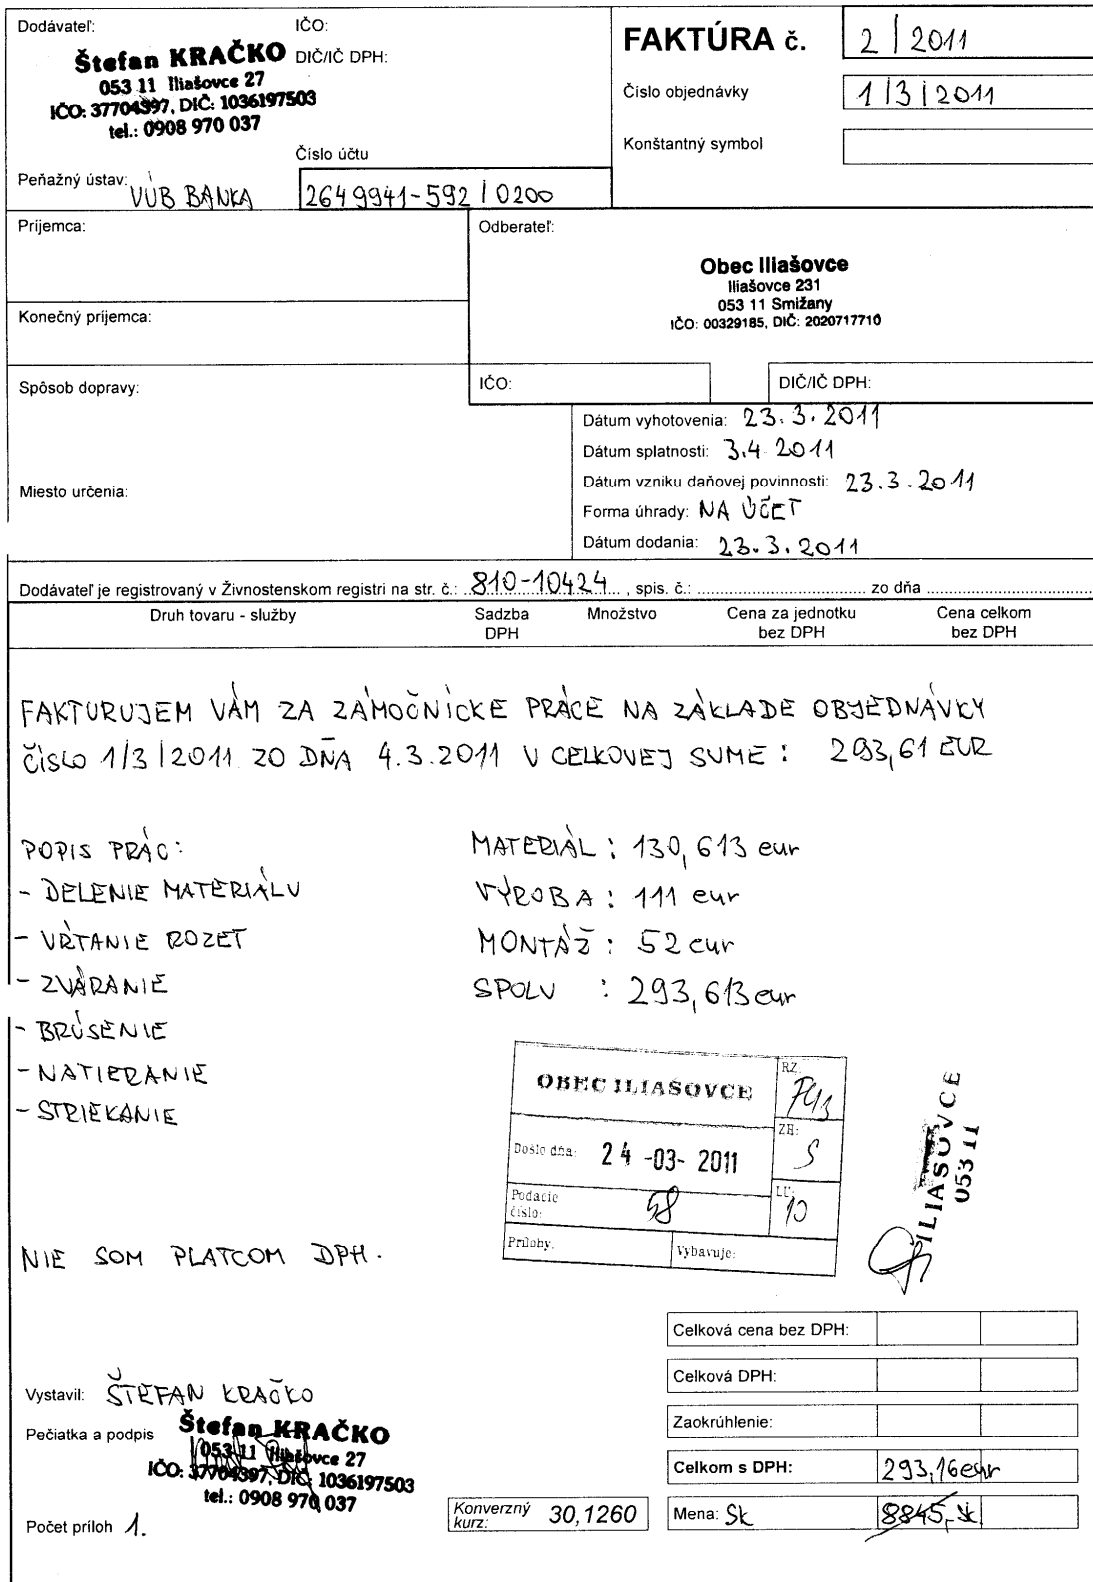 Dodávateľ:
IČO:
DIČ/IČ DPH:
Štefan KRAČKO
053 11 Iliašovce 27
IČO: 37704397, DIČ: 1036197503
tel.: 0908 970 037
FAKTÚRA č. 2 | 2011
Číslo objednávky 1 | 3 | 2011
Konštantný symbol
Číslo účtu
Peňažný ústav: VÚB BANKA 2649941-592 / 0200
Príjemca:
Odberateľ:
Obec Iliašovce
Iliašovce 231
053 11 Smižany
IČO: 00329185, DIČ: 2020717710
Konečný príjemca:
IČO:
DIČ/IČ DPH:
Spôsob dopravy:
Miesto určenia:
Dátum vyhotovenia: 23.3.2011
Dátum splatnosti: 3.4.2011
Dátum vzniku daňovej povinnosti: 23.3.2011
Forma úhrady: NA ÚČET
Dátum dodania: 23.3.2011
Dodávateľ je registrovaný v Živnostenskom registri na str. č.: 810-10424 , spis. č.: zo dňa
Druh tovaru - služby Sadzba DPH Množstvo Cena za jednotku bez DPH Cena celkom bez DPH
FAKTURUJEM VÁM ZA ZÁMOČNÍCKE PRÁCE NA ZÁKLADE OBJEDNÁVKY
ČÍSLO 1/3/2011 ZO DŇA 4.3.2011 V CELKOVEJ SUME : 293,61 EUR
POPIS PRÁC:
- DELENIE MATERIÁLU
- VŔTANIE ROZET
- ZVÁRANIE
- BRÚSENIE
- NATIERANIE
- STRIEKANIE
MATERIÁL : 130,613 eur
VÝROBA : 111 eur
MONTÁŽ : 52 eur
SPOLU : 293,613 eur
OBEC ILIAŠOVCE
RZ:
ZH: S
Došlo dňa: 24 -03- 2011
Podacie číslo: 58
LÚ: 10
Prílohy:
Vybavuje:
ILIAŠOVCE
053 11
NIE SOM PLATCOM DPH.
Celková cena bez DPH:
Celková DPH:
Zaokrúhlenie:
Celkom s DPH: 293,16 eur
Mena: Sk 8845,- Sk
Vystavil: ŠTEFAN KRAČKO
Pečiatka a podpis
Štefan KRAČKO
053 11 Iliašovce 27
IČO: 37704397, DIČ: 1036197503
tel.: 0908 970 037
Konverzný kurz: 30,1260
Počet príloh 1.